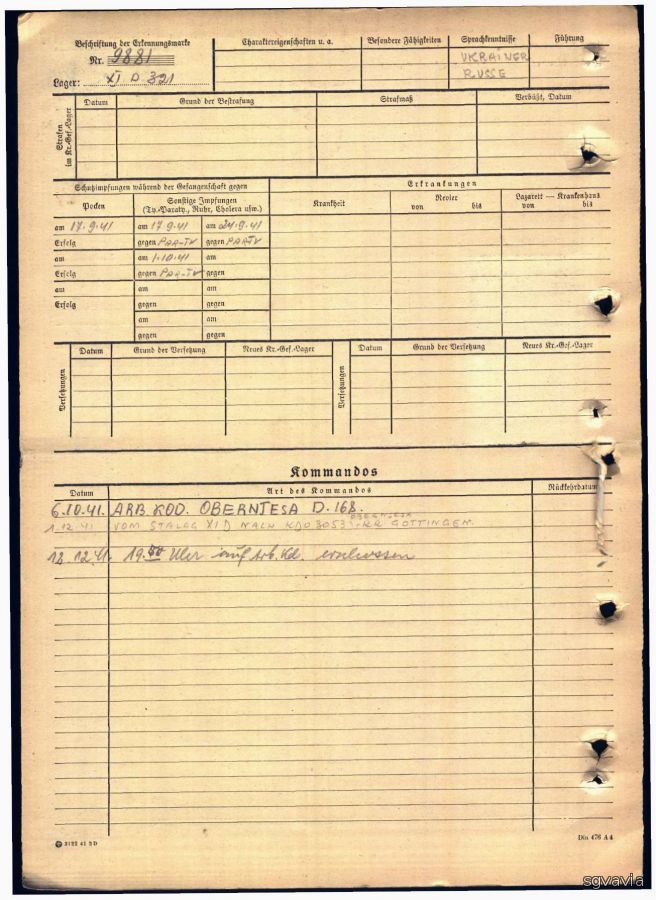 Beschriftung der Erkennungsmarke
Nr. 9881
Lager: XI D 321
Charaktereigenschaften u. a.
Besondere Fähigkeiten
Sprachkenntnisse
Führung
UKRAINER
RUSSE
Strafen
im Kr.-Gef.-Lager
Datum
Grund der Bestrafung
Strafmaß
Verbüßt, Datum
Schutzimpfungen während der Gefangenschaft gegen
Erkrankungen
Pocken
Sonstige Impfungen
(Ty.-Paraty., Ruhr, Cholera usw.)
Krankheit
Revier
von bis
Lazarett — Krankenhaus
von bis
am 17.9.41 am 17.9.41 am 24.9.41
Erfolg gegen PAR-TY gegen PARTY
am am 1.10.41 am
Erfolg gegen PAR-TY gegen
am am am
Erfolg gegen gegen
am am
gegen gegen
Versetzungen
Datum
Grund der Versetzung
Neues Kr.-Gef.-Lager
Versetzungen
Datum
Grund der Versetzung
Neues Kr.-Gef.-Lager
Kommandos
Datum
Art des Kommandos
Rückkehrdatum
6.10.41. ARB. KOD. OBERNJESA D. 168.
1.12.41 VOM STALAG XI D NACH KDO 3053 GÖTTINGEN.
18.12.41. 19.00 Uhr auf Arb. Kd. erschossen
Din 476 A 4
sgvavia